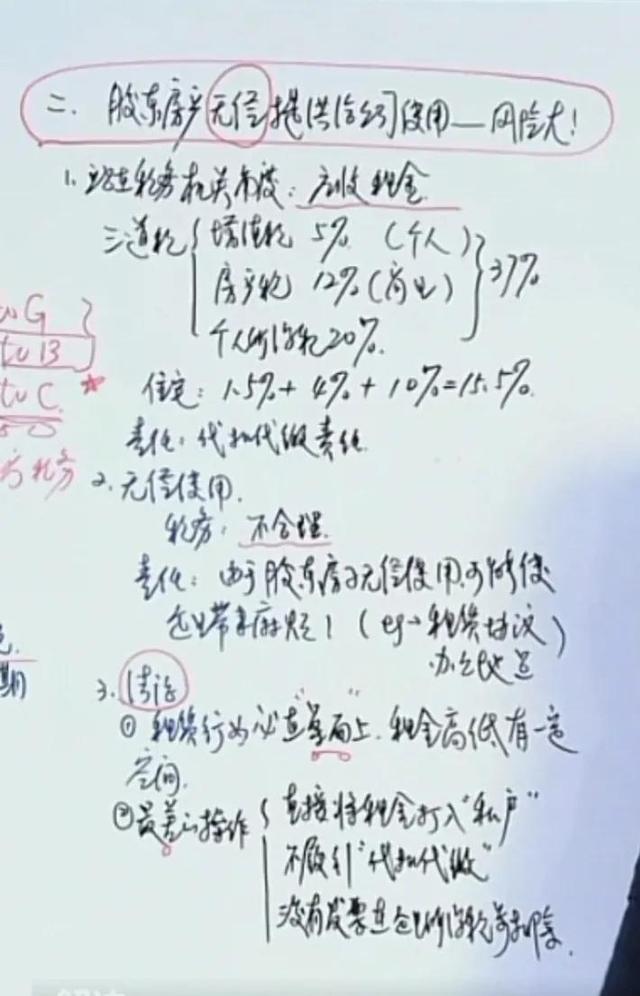 二. 股东房产无偿提供给公司使用—风险大!
1. 站在税务机关角度: 应收租金.
三道税 { 增值税 5% (个人)
房产税 12% (商业) } 37%
个人所得税20%.
住宅: 1.5%+4%+10%=15.5%.
责任: 代扣代缴责任.
2. 无偿使用.
税务: 不合理.
责任: 由于股东房子无偿使用,可能使
企业带来麻烦! (eg→租赁协议)
办公地点
3. 结论
① 租赁行为必在"桌面"上. 租金高低有一定
空间.
②最差的操作 { 直接将租金打入"私户"
不履行"代扣代缴"
没有发票在企业所得税前扣除.
G
13
C
税务
期